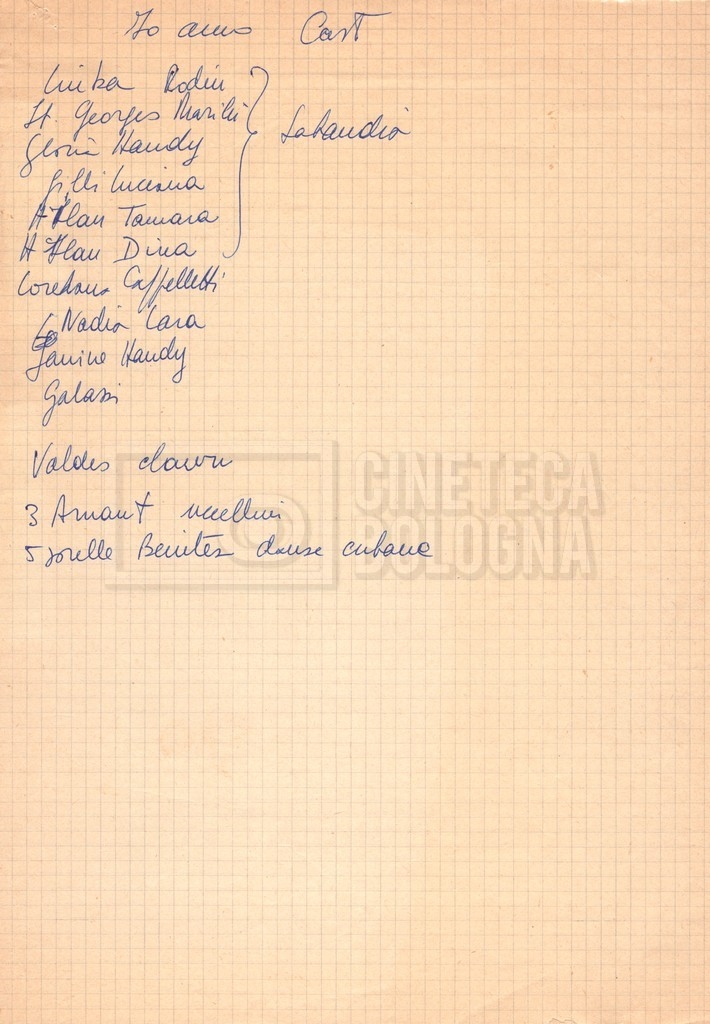 Io amo Cast
Rodin
St. Georges Marilù
Gloria Handy
Gilli Luciana
Atlan Tamara
Atlan Dina
Sabaudia
Loredana Cappelletti
Nadia Lara
Janine Handy
Galassi
Valdes clown
3 Arnaut uccellini
5 sorelle Benitez danse cubane
CINETECA
BOLOGNA